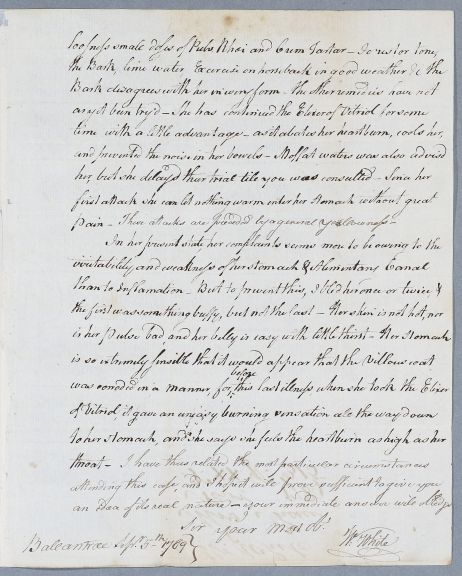 loosness small doses of Pulv. Rhei and Crem Tartar – To restor tone,
the Bark, lime water Exercise on horseback in good weather &c the
Bark disagrees with her in every form – the other remedies have not
as yet been try'd – She has continued the Elixer of Vitriol for some
time with a little advantage – as it abates her heartburn, cools her,
and prevented the noise in her bowels – Moffat water was also advised
her, but she delays their trial till you was consulted – Since her
first attack she can let nothing warm enter her stomach without great
pain – These attacks are preceeded by a general yeloweness –
In her present state her complaints seems more to be owing to the
irritability and weakness of her stomach & Alimentary Canal
than to Inflamation – But to prevent this, I bled her once or twice &
the first was something buffy, but not the last – Her skin is not hot, nor
is her pulse bad, and her belly is easy with little thirst – Her stomach
is so extremely sensible that it would appear that the Villous coat
before
was corroded in a manner, for this last illness when she took the Elixer
of Vitriol it gave an uneasy burning sensation all the way down
to her stomach, and she says she feels the heartburn as high as her
throat – I have thus related the most particular circumstances
attending this case and I hope it will prove sufficient to give you
an idea of its real nature – your immediate answer will oblige
Sir your most ob.t
Ballantrae Sept. 5th 1789} Wm White